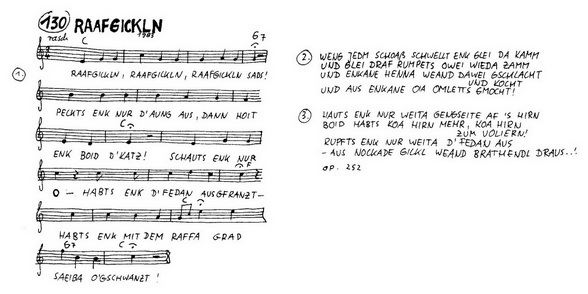 130 RAAFGICKLN
rasch C 1989 G7
1. RAAFGICKLN, RAAFGICKLN, RAAFGICKLN SADS!
PECKTS ENK NUR D'AUNG AUS, DANN HOIT
C
ENK BOID D'KATZ! SCHAUTS ENK NUR
F
O - HABTS ENK D'FEDAN AUSGFRANZT -
C
HABTS ENK MIT DEM RAFFA GRAD
G7 C
SAEIBA O'GSCHWANZT!
2. WENG JEDM SCHOAß SCHWELLT ENK GLEI DA KAMM
UND GLEI DRAF RUMPETS OWEI WIEDA ZAMM
UND ENKANE HENNA WEAND DAWEI GSCHLACHT
UND KOCHT
UND AUS ENKANE OA OMLETTS GMOCHT!
3. HAUTS ENK NUR WEITA GENGSEITE AF'S HIRN
BOID HABTS KOA HIRN MEHR, KOA HIRN
ZUM VOLIERN!
RUPFTS ENK NUR WEITA D'FEDAN AUS
- AUS NOCKADE GICKL WEAND BRATHENDL DRAUS...!
OP. 252